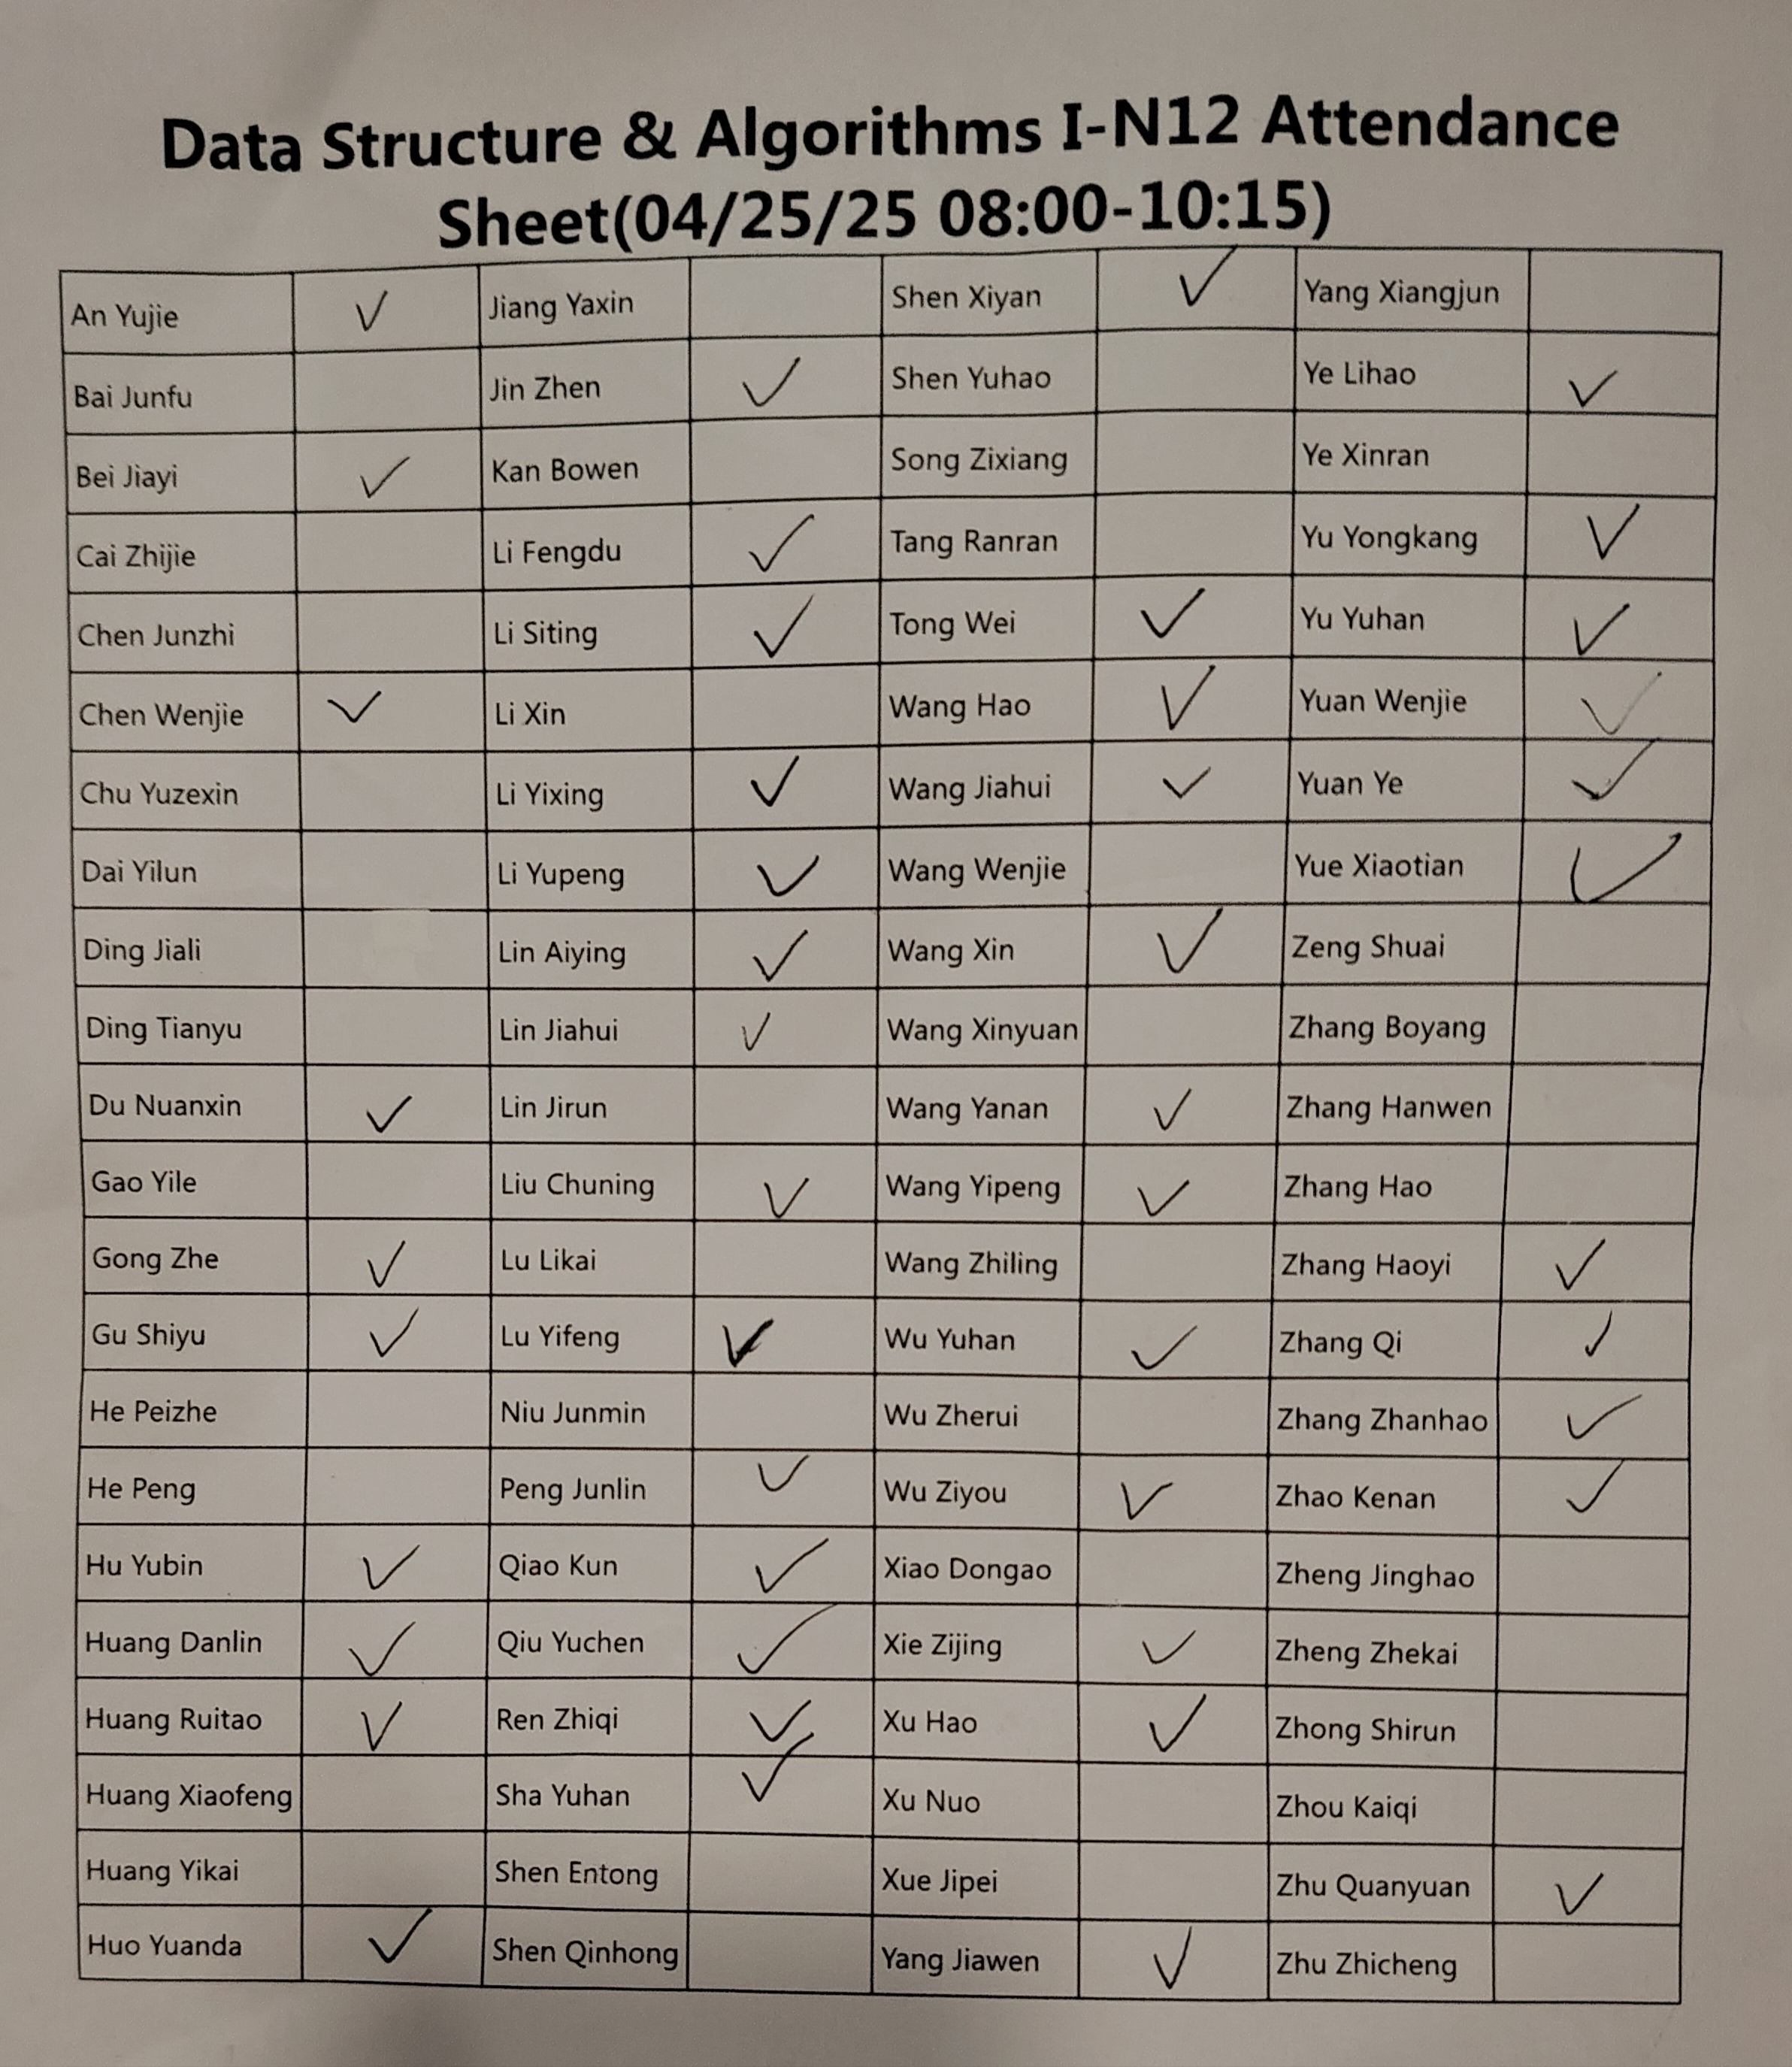 Data Structure & Algorithms I-N12 Attendance
Sheet(04/25/25 08:00-10:15)
An Yujie ✓ Jiang Yaxin Shen Xiyan ✓ Yang Xiangjun
Bai Junfu Jin Zhen ✓ Shen Yuhao Ye Lihao ✓
Bei Jiayi ✓ Kan Bowen Song Zixiang Ye Xinran
Cai Zhijie Li Fengdu ✓ Tang Ranran Yu Yongkang ✓
Chen Junzhi Li Siting ✓ Tong Wei ✓ Yu Yuhan ✓
Chen Wenjie ✓ Li Xin Wang Hao ✓ Yuan Wenjie ✓
Chu Yuzexin Li Yixing ✓ Wang Jiahui ✓ Yuan Ye ✓
Dai Yilun Li Yupeng ✓ Wang Wenjie Yue Xiaotian ✓
Ding Jiali Lin Aiying ✓ Wang Xin ✓ Zeng Shuai
Ding Tianyu Lin Jiahui ✓ Wang Xinyuan Zhang Boyang
Du Nuanxin ✓ Lin Jirun Wang Yanan ✓ Zhang Hanwen
Gao Yile Liu Chuning ✓ Wang Yipeng ✓ Zhang Hao
Gong Zhe ✓ Lu Likai Wang Zhiling Zhang Haoyi ✓
Gu Shiyu ✓ Lu Yifeng ✓ Wu Yuhan ✓ Zhang Qi ✓
He Peizhe Niu Junmin Wu Zherui Zhang Zhanhao ✓
He Peng Peng Junlin ✓ Wu Ziyou ✓ Zhao Kenan ✓
Hu Yubin ✓ Qiao Kun ✓ Xiao Dongao Zheng Jinghao
Huang Danlin ✓ Qiu Yuchen ✓ Xie Zijing ✓ Zheng Zhekai
Huang Ruitao ✓ Ren Zhiqi ✓ Xu Hao ✓ Zhong Shirun
Huang Xiaofeng Sha Yuhan ✓ Xu Nuo Zhou Kaiqi
Huang Yikai Shen Entong Xue Jipei Zhu Quanyuan ✓
Huo Yuanda ✓ Shen Qinhong Yang Jiawen ✓ Zhu Zhicheng